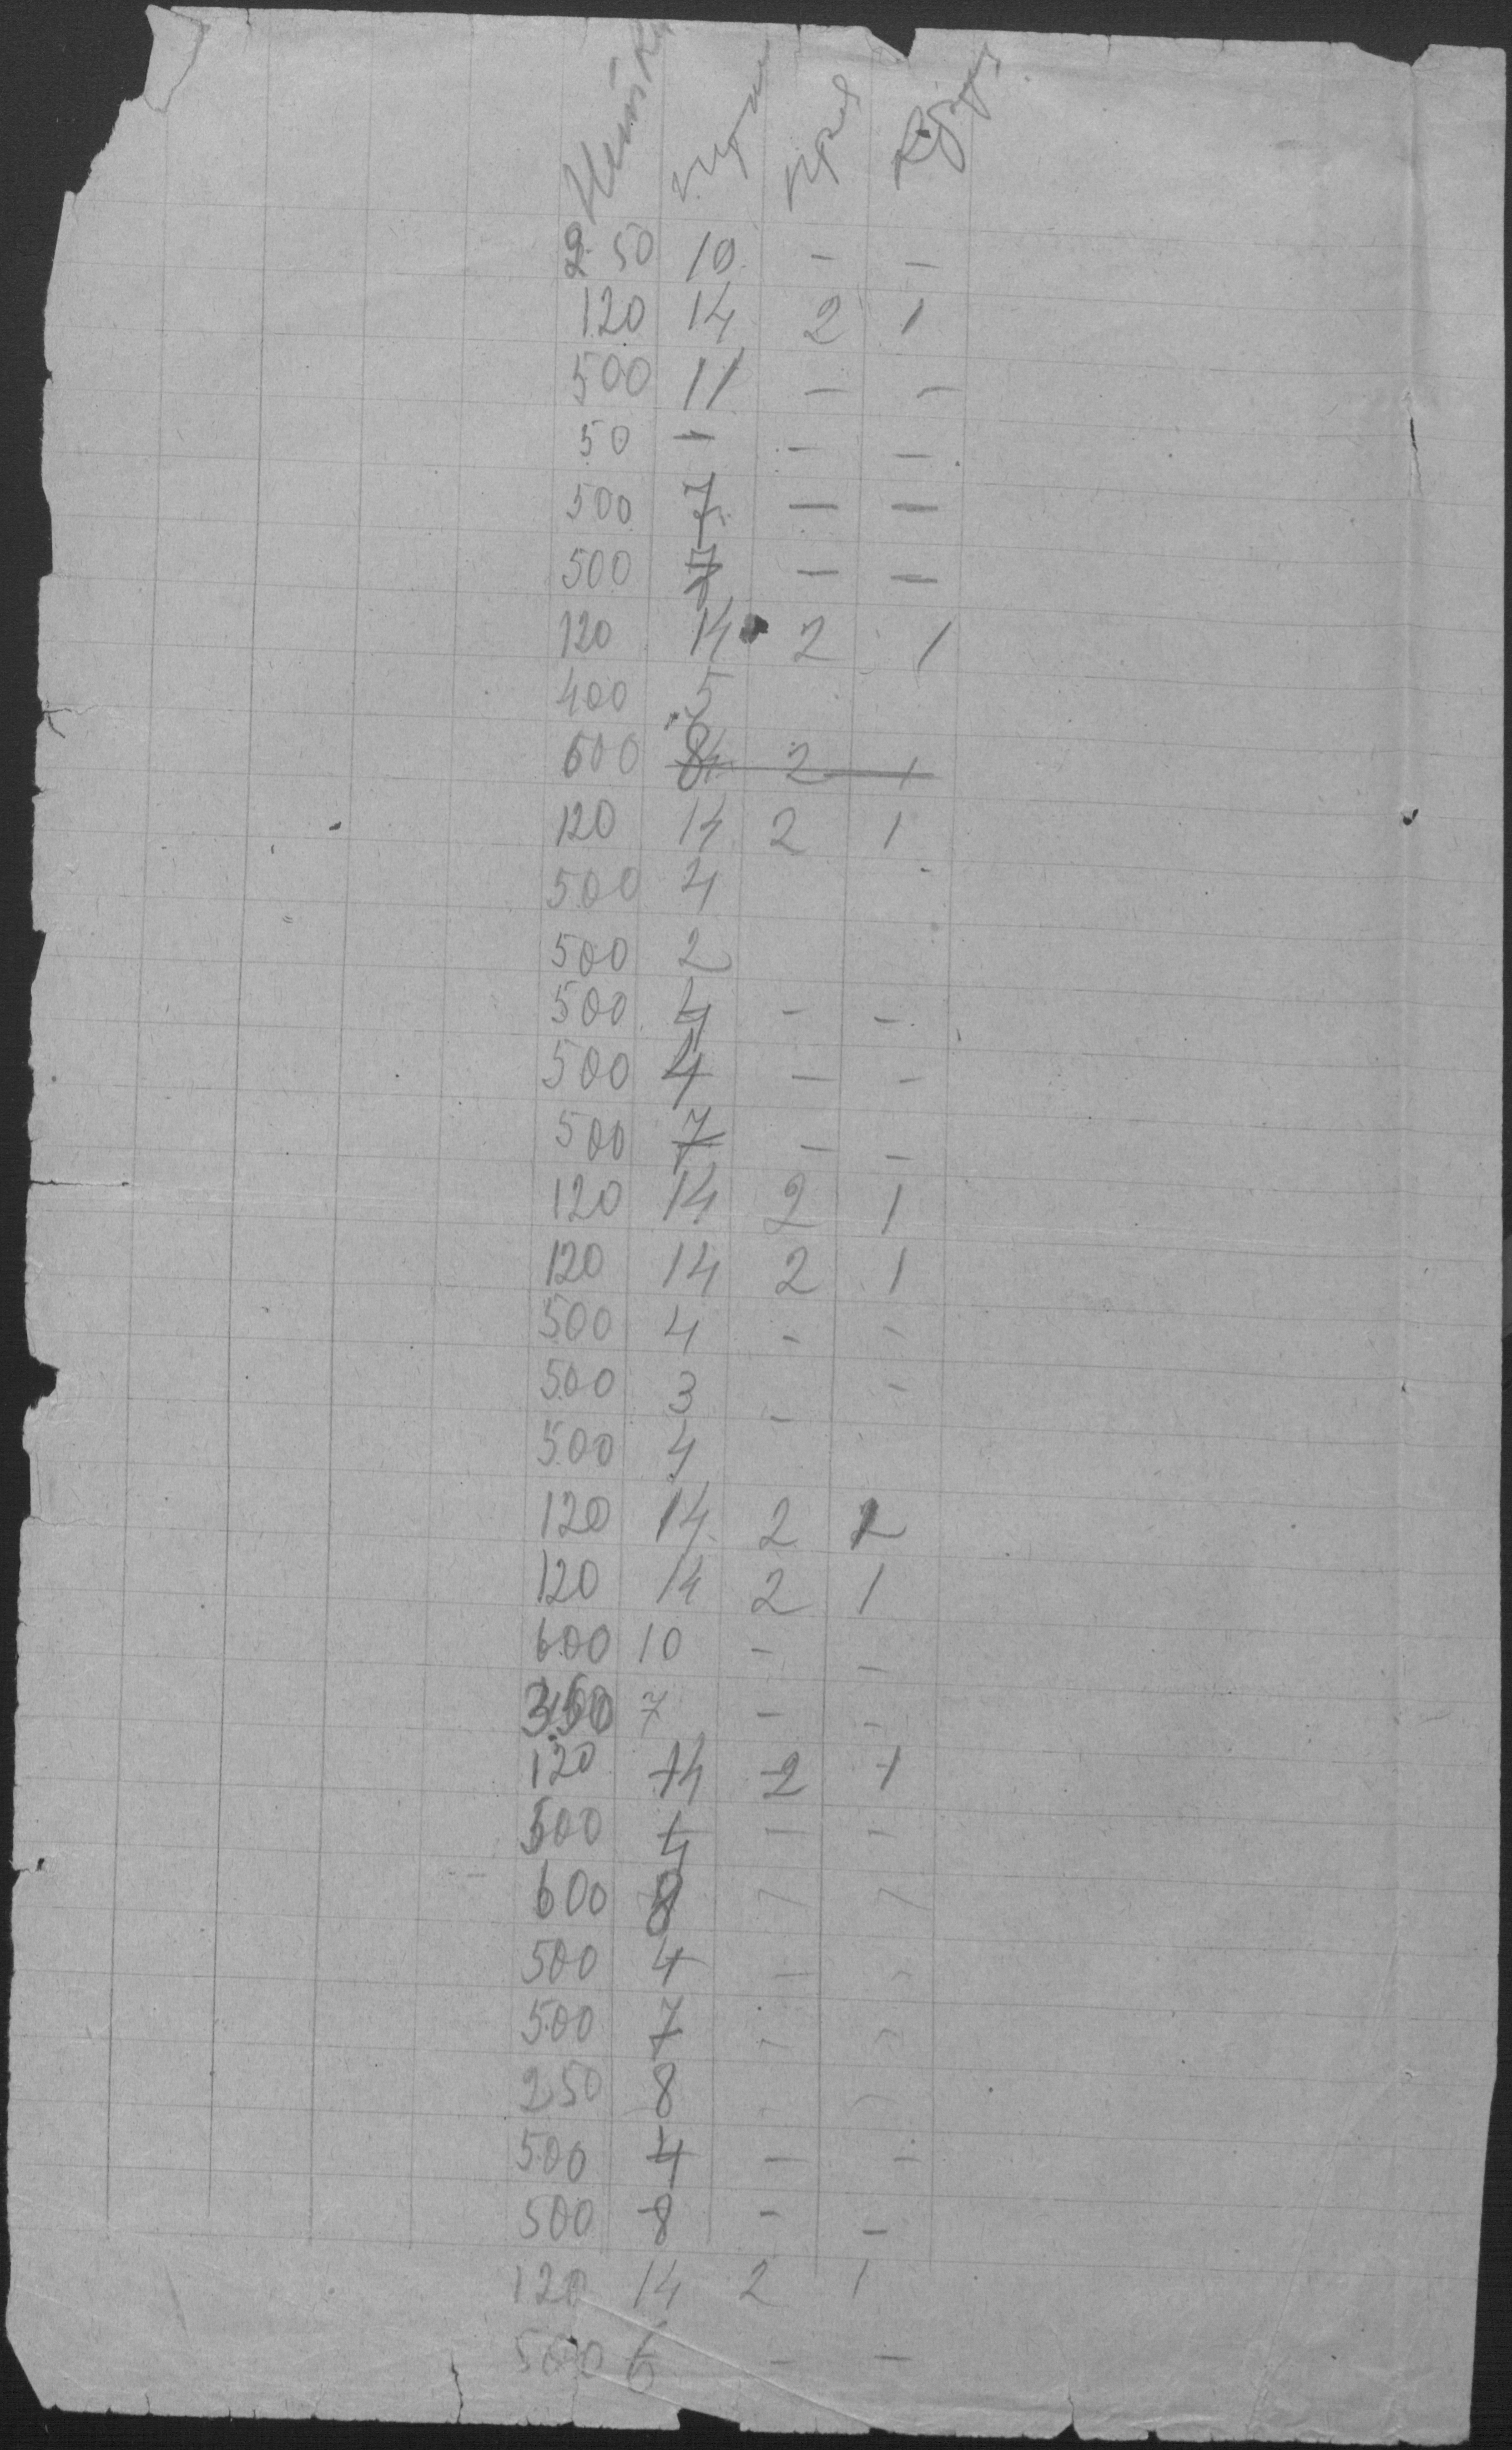 250 10 – –
120 14 2 1
500 11 – –
50 – – –
500 7 – –
500 7 – –
120 14 2 1
400 5
600 8 2 1
120 14 2 1
500 4
500 2
500 4 – –
500 4 – –
500 7 – –
120 14 2 1
120 14 2 1
500 4 – –
500 3 – –
500 4
120 14 2 2
120 14 2 1
600 10 – –
7 – –
120 14 2 1
500 4 – –
600 8 – –
500 4 – –
500 7 – –
250 8 – –
500 4 – –
500 8 – –
120 14 2 1
500 6 – –